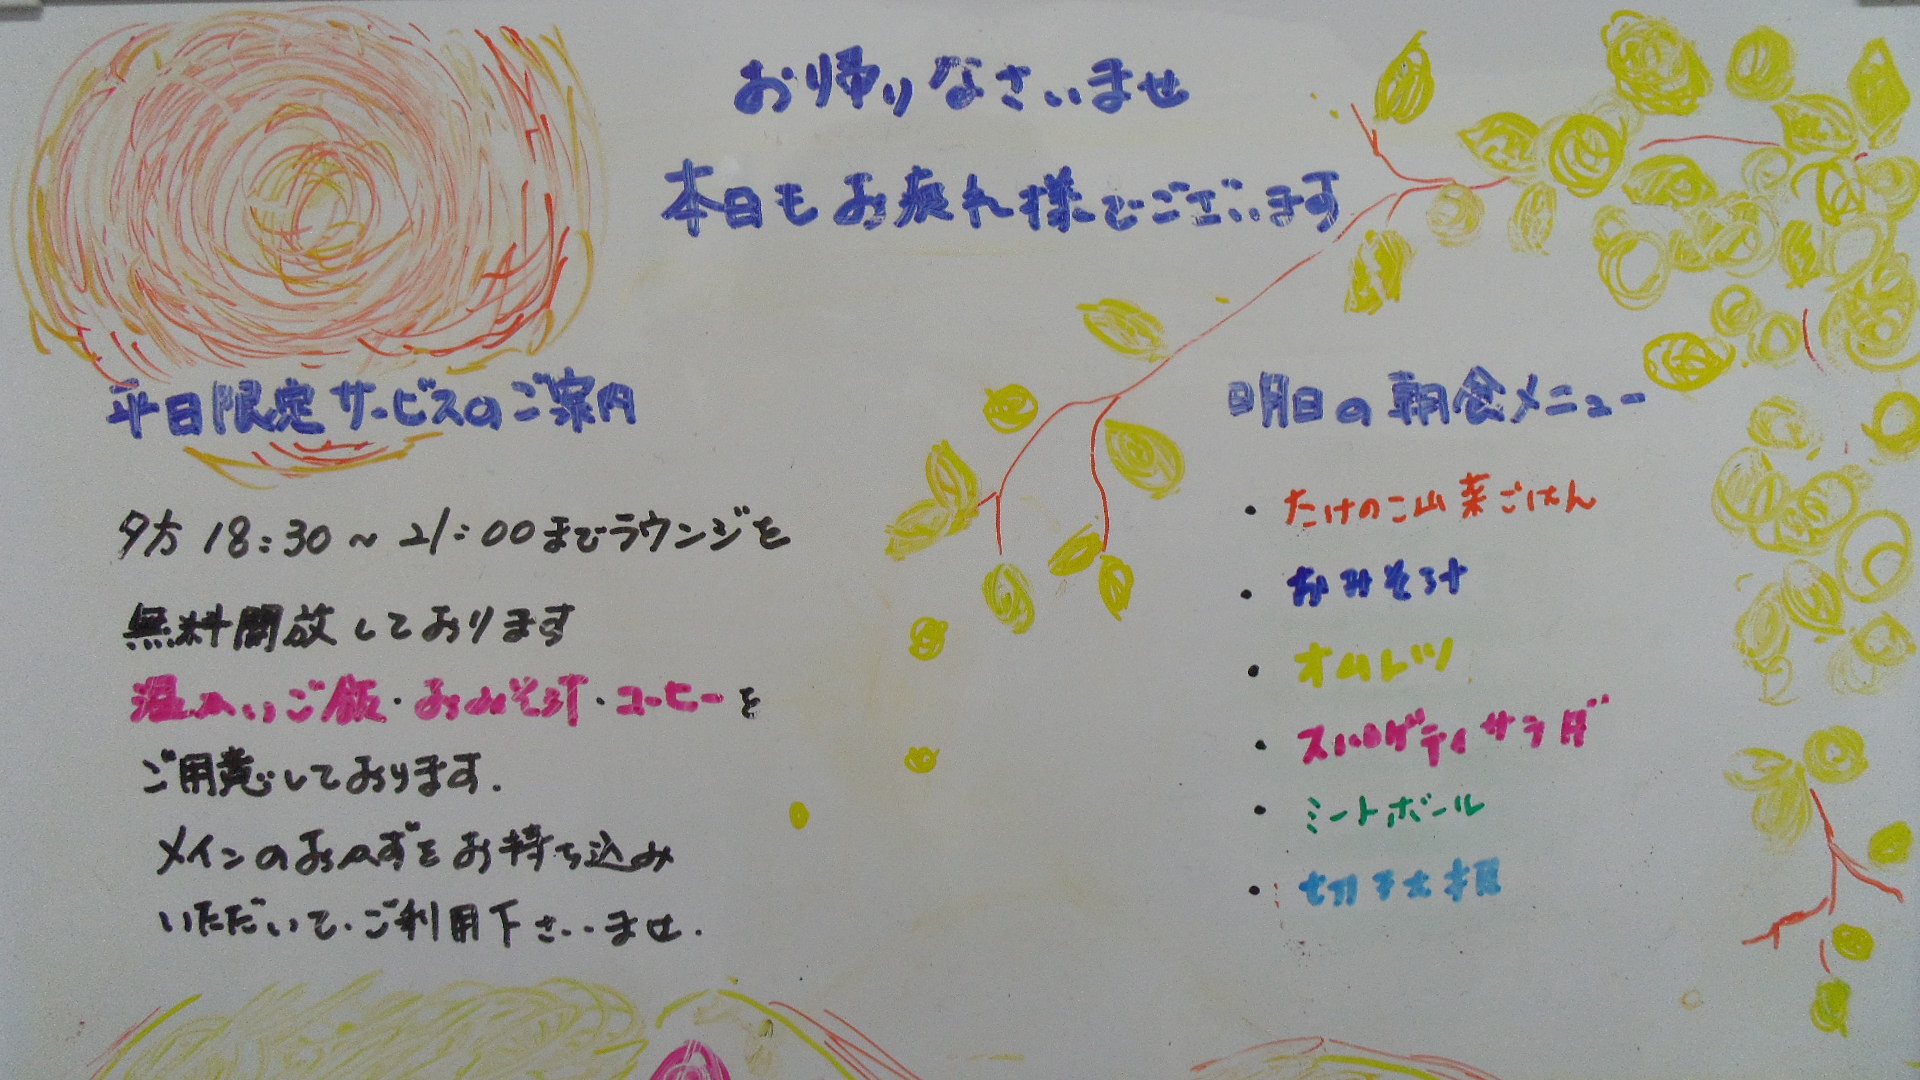 お帰りなさいませ
本日もお疲れ様でございます
平日限定サービスのご案内
夕方18:30～21:00までラウンジを
無料開放しております
温かいご飯・おみそ汁・コーヒーを
ご用意しております.
メインのおかずをお持ち込み
いただいて、ご利用下さいませ.
明日の朝食メニュー
・たけのこ山菜ごはん
・おみそ汁
・オムレツ
・スパゲティサラダ
・ミートボール
・切干大根